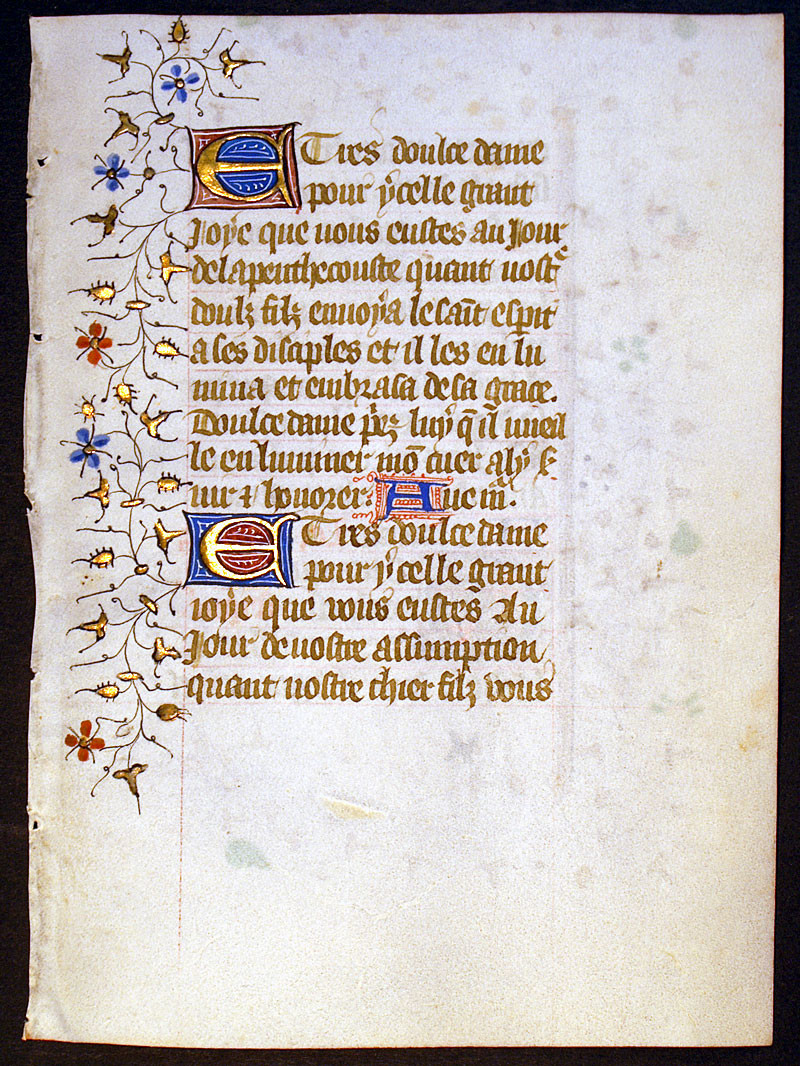 E Tres doulce dame
pour ycelle grant
Joye que vous eustes au Jour
de la penthecouste quant vostᵉ
doulz filz envoya le saīt esp̄it
a ses disciples et il les en lu
mina et embrasa de sa grace.
Doulce dame p̄ez luy q̄ il vueil
le en luminer mō cuer a ly s̄
vir ⁊ honorer. Ave m̄.
E Tres doulce dame
pour ycelle grant
ioye que vous eustes Au
Jour de vostre assumption
quant vostre chier filz vous